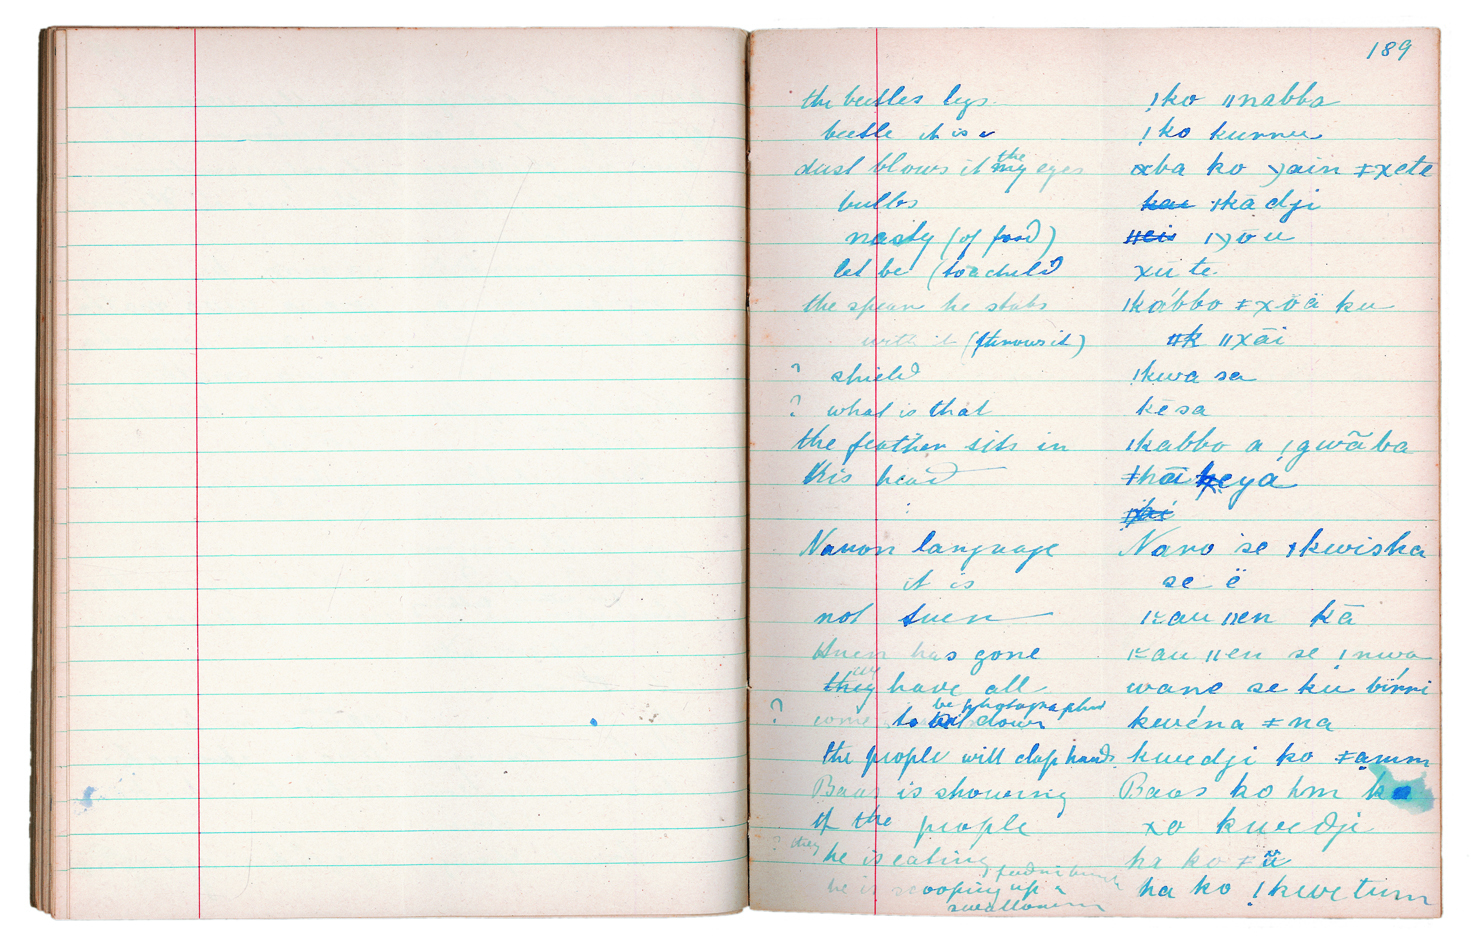 189
the beetles legs. !ko ǁnabba
beetle it is a !ko kunnu
dust blows it the my eyes xba ko )ain ǂxete
bulbs ǀkādji
nasty (of food) ǀ)ōu
let be (to a child) xū te
the spear he stabs ǀkábbo ǂxöä ku
with it (throws it) ǁk ǁxāi
? shield !kwa sa
? what is that kēsa
the feather sits in ǀkabbo a !gwãba
this head ǂnā keyá
Naron language Naro se ǀkwiska
it is se ë
not ǀkau ǁen kā
has gone ǀkau ǁen se !nwa
they have all wane se ku birri
? come to be photographed down kwéna ǂna
the people will clap hands kwedji ko ǂamm
Baas is showing Baas ko hm ka
the people xo kwedji
? they he is eating ha ko ǂū
he is scooping up a ha ko !kwe tum
swallowing